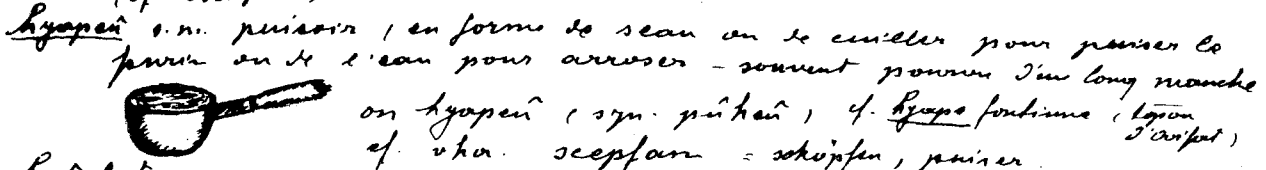 hyapeû s.m. puisoir, en forme de seau ou de cuiller pour puiser le
purin ou de l'eau pour arroser - souvent pourvu d'un long manche
on hyapeû (syn. pûheû) cf. hyape fontinne (
cf. vha. scepfan = schöpfen, puiser